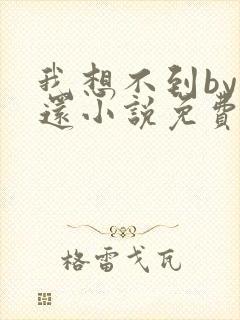 我想不到by
還小說免費
格雷戈瓦